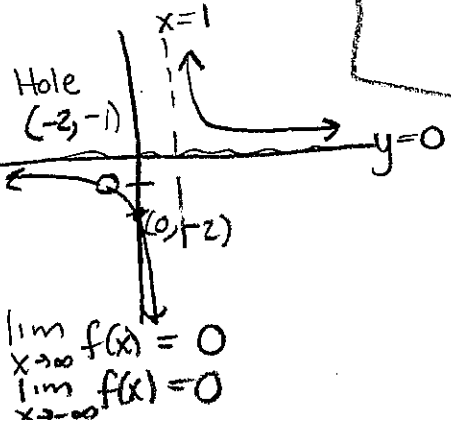 x=1
Hole
(-2,-1)
y=0
(0,-2)
lim f(x) = 0
x→∞
lim f(x) = 0
x→-∞